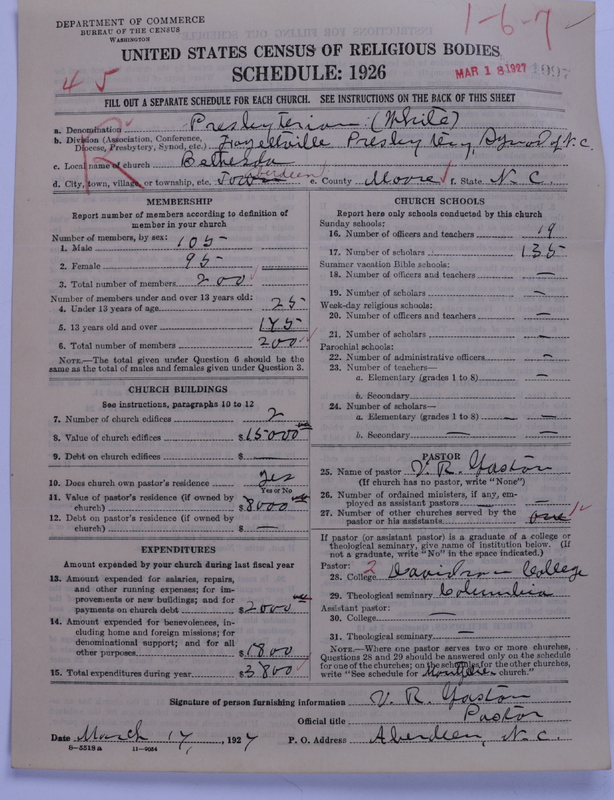 DEPARTMENT OF COMMERCE
BUREAU OF THE CENSUS
WASHINGTON
1-6-7-
UNITED STATES CENSUS OF RELIGIOUS BODIES
SCHEDULE: 1926
MAR 18 1927
45
FILL OUT A SEPARATE SCHEDULE FOR EACH CHURCH. SEE INSTRUCTIONS ON THE BACK OF THIS SHEET
a. Denomination Presbyterian (White)
b. Division (Association, Conference, Diocese, Presbytery, Synod, etc.) Fayettville Presbytery, Synod of N.C.
c. Local name of church Bethesda
d. City, town, village, or township, etc. Town Aberdeen e. County Moore f. State N.C.
MEMBERSHIP
Report number of members according to definition of member in your church
Number of members, by sex:
1. Male 105
2. Female 95
3. Total number of members 200
Number of members under and over 13 years old:
4. Under 13 years of age 25
5. 13 years old and over 175
6. Total number of members 200
NOTE.—The total given under Question 6 should be the same as the total of males and females given under Question 3.
CHURCH BUILDINGS
See instructions, paragraphs 10 to 12
7. Number of church edifices 2
8. Value of church edifices $15000
9. Debt on church edifices $ —
10. Does church own pastor's residence yes
Yes or No
11. Value of pastor's residence (if owned by church) $8000
12. Debt on pastor's residence (if owned by church) $ —
EXPENDITURES
Amount expended by your church during last fiscal year
13. Amount expended for salaries, repairs, and other running expenses; for improvements or new buildings; and for payments on church debt $2000
14. Amount expended for benevolences, including home and foreign missions; for denominational support; and for all other purposes $1800
15. Total expenditures during year $3800
CHURCH SCHOOLS
Report here only schools conducted by this church
Sunday schools:
16. Number of officers and teachers 19
17. Number of scholars 135
Summer vacation Bible schools:
18. Number of officers and teachers —
19. Number of scholars —
Week-day religious schools:
20. Number of officers and teachers —
21. Number of scholars —
Parochial schools:
22. Number of administrative officers —
23. Number of teachers—
a. Elementary (grades 1 to 8) —
b. Secondary
24. Number of scholars—
a. Elementary (grades 1 to 8) —
b. Secondary —
PASTOR
25. Name of pastor V. R. Gaston
(If church has no pastor, write "None")
26. Number of ordained ministers, if any, employed as assistant pastors —
27. Number of other churches served by the pastor or his assistants one
If pastor (or assistant pastor) is a graduate of a college or theological seminary, give name of institution below. (If not a graduate, write "No" in the space indicated.)
Pastor: 2
28. College Davidson College
29. Theological seminary Columbia
Assistant pastor:
30. College —
31. Theological seminary —
NOTE.—Where one pastor serves two or more churches, Questions 28 and 29 should be answered only on the schedule for one of the churches; on the schedules for the other churches, write "See schedule for church."
Signature of person furnishing information V. R. Gaston
Official title Pastor
Date March 17, 1927 P. O. Address Aberdeen, N.C.
8-5518a 11-9054